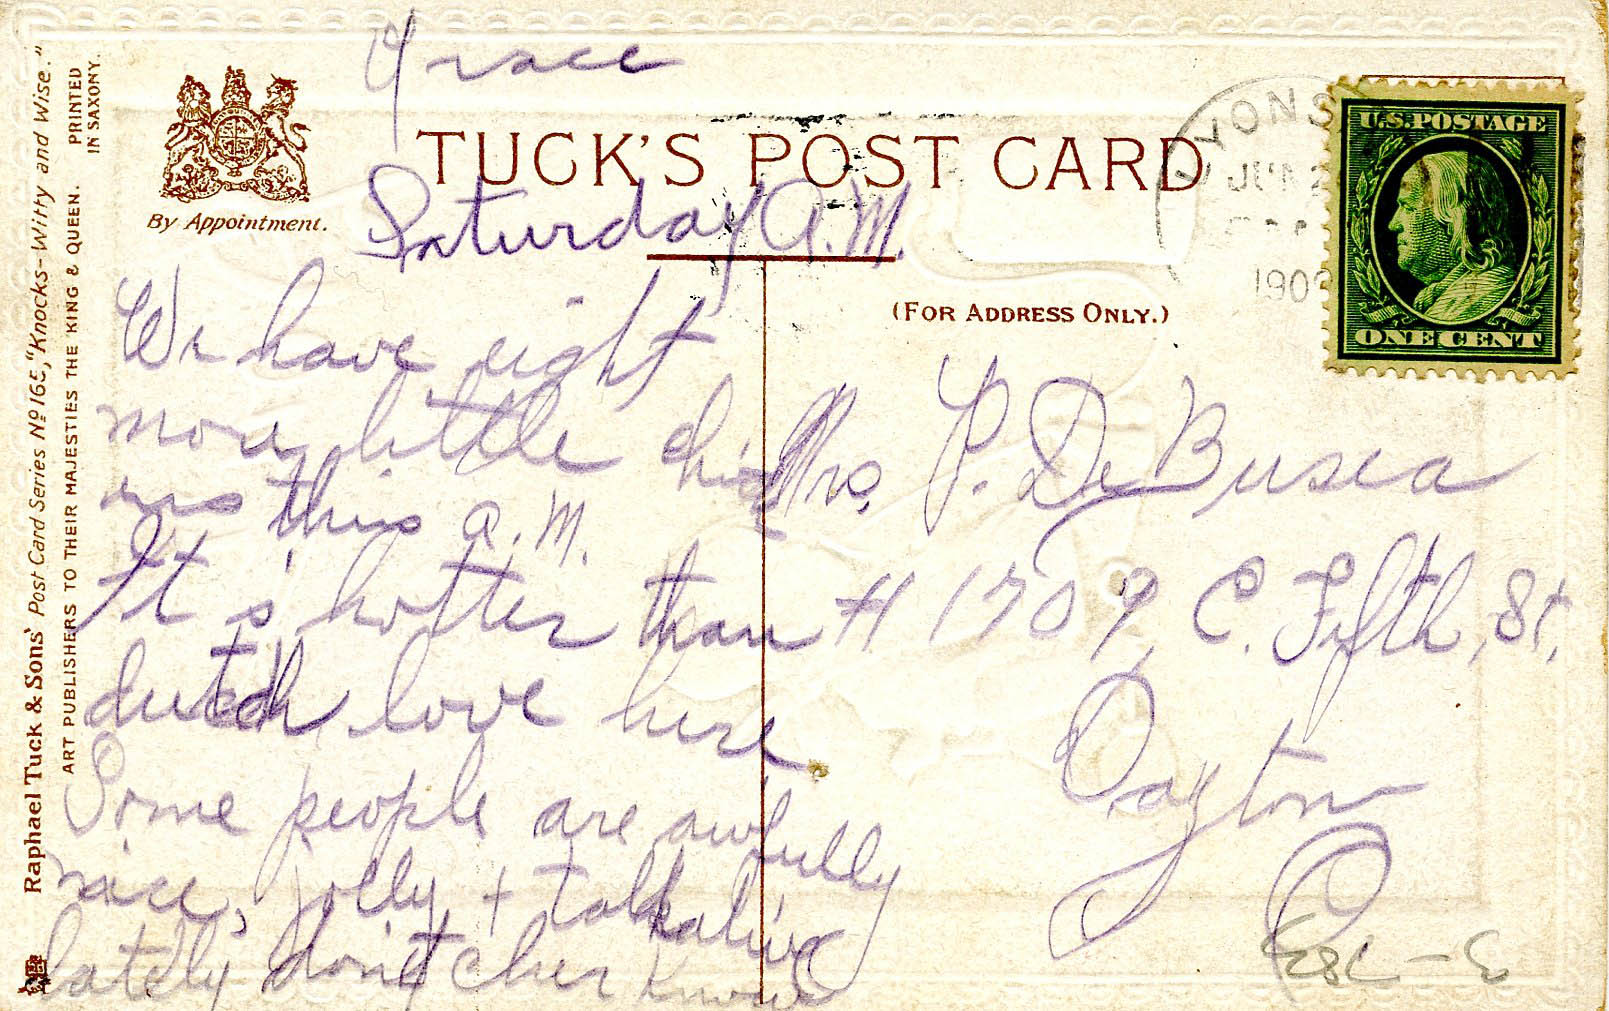 Grace
TUCK'S POST CARD
By Appointment.
Saturday A.M.
We have eight
more little chick
ens this a.m.
It's hotter than
dutch love here
Some people are awfully
nice, jolly + talkative
lately dont cher know
(FOR ADDRESS ONLY.)
Mrs. P. De Busca
# 1709 E. Fifth, St.
Dayton
O
Raphael Tuck & Sons' Post Card Series Nº 165, "Knocks-Witty and Wise."
ART PUBLISHERS TO THEIR MAJESTIES THE KING & QUEEN.
PRINTED
IN SAXONY.
YONS
JUN 2
190
U.S. POSTAGE
ONE CENT